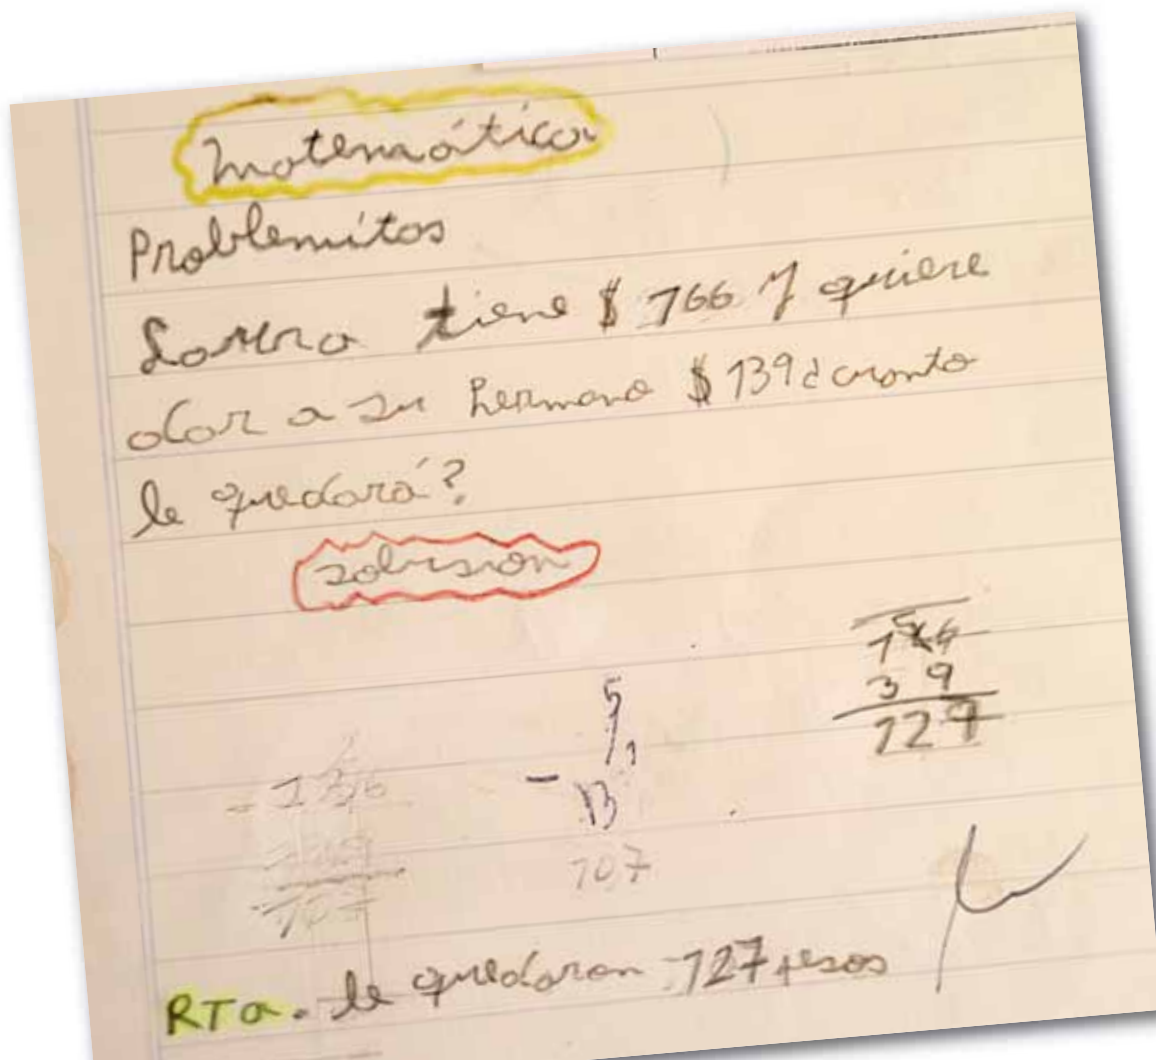 Matemática
Problemitas
Laura tiene $ 166 y quiere
dar a su hermano $ 139 ¿cuanto
le quedará?
solusion
5
166
39
127
5
1
- 13
107
107
RTa. le quedaran 127 pesos